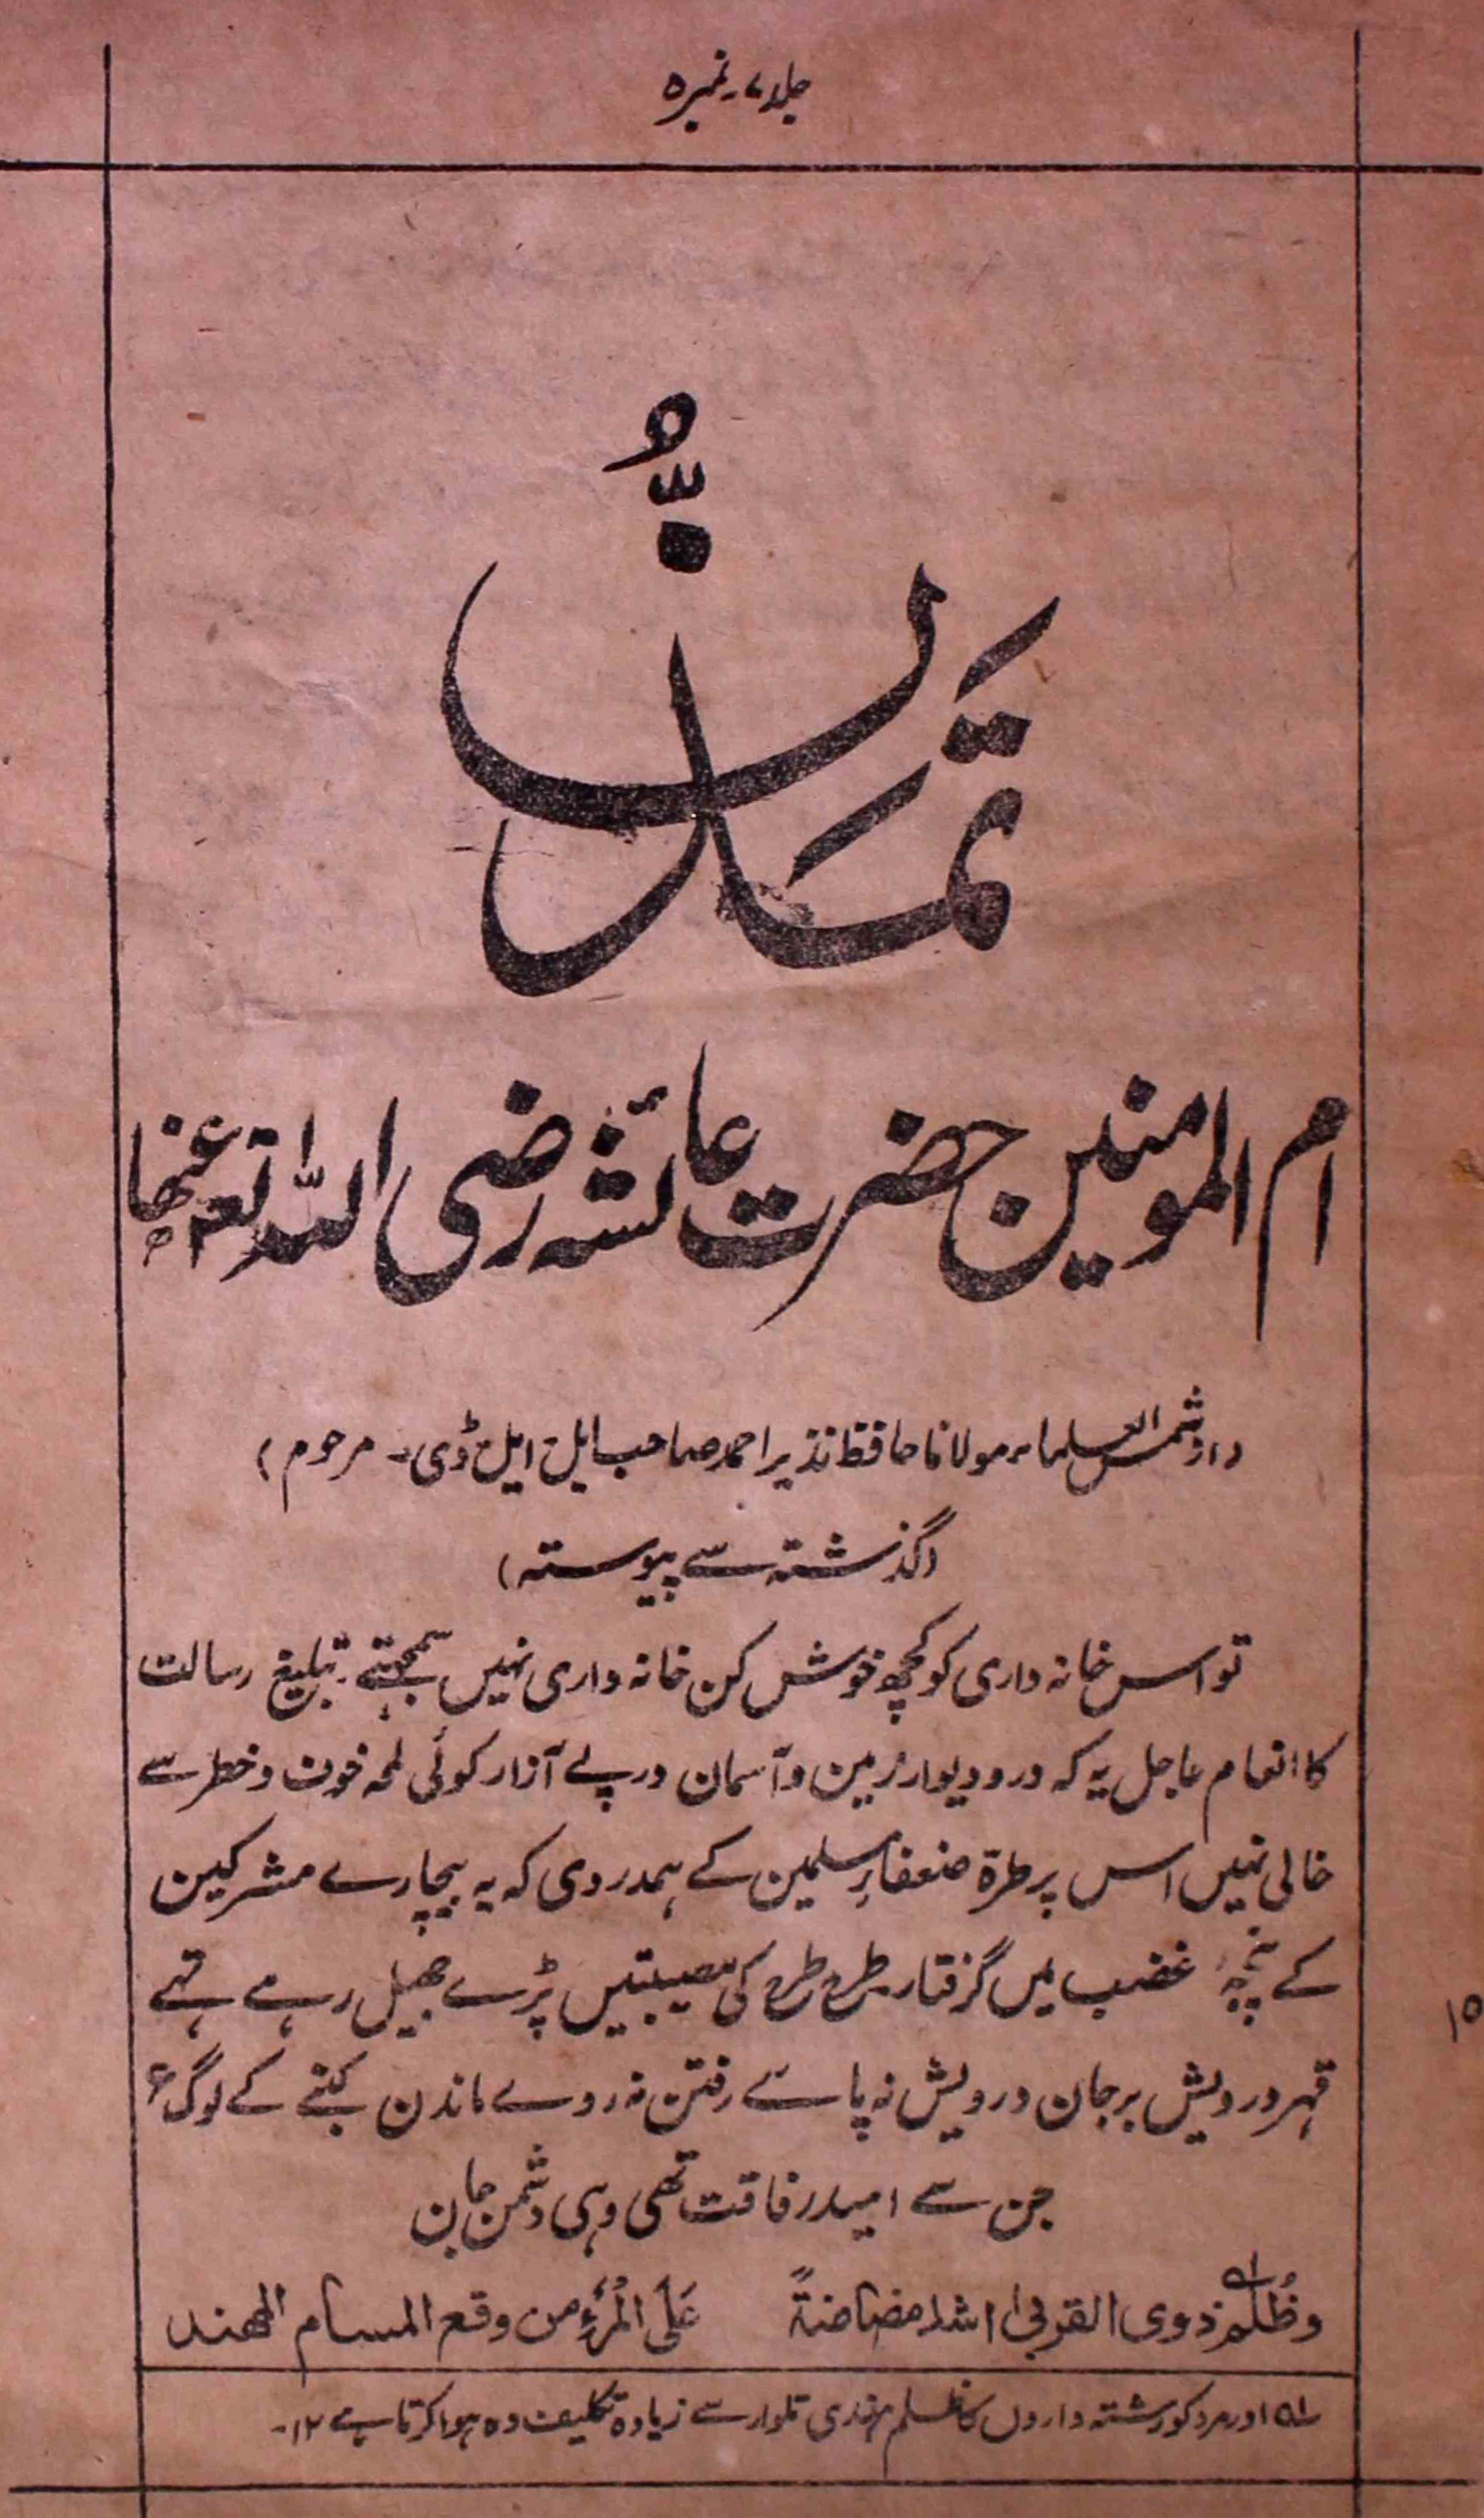 جلد ۷ - نمبر ۵
تمدن
ام المومنین حضرت عائشہ رضی اللہ تعہ عنہا
(از شمس العلماء مولانا حافظ نذیر احمد صاحب ایل ایل ڈی - مرحوم)
(گذشتہ سے پیوستہ)
تو اس خانہ داری کو کچھ خوش کن خانہ داری نہیں سمجھتے - تبلیغ رسالت
کا انعام عاجل یہ کہ در و دیوار زمین و آسمان درپے آزار کوئی لمحہ خوف و خطر سے
خالی نہیں اس پر طرۃ ضعفاء مسلمین کے ہمدردی کہ یہ بیچارے مشرکین
کے پنجۂ غضب میں گرفتار طرح طرح کی مصیبتیں پڑے جھیل رہے تھے
قہر درویش بر جان درویش نہ پائے رفتن نہ روے ماندن کنبے کے لوگ ؏
جن سے امید رفاقت تھی وہی دشمن جان
وظُلم ذوی القربیٰ اشد مضاضۃً عَلَی الْمَرْءِ من وقع الحسام المهند
۵۱ اور مرد کو رشتہ داروں کا ظلم ہندی تلوار سے زیادہ تکلیف دہ ہوا کرتا ہے ۱۲-
۱۵